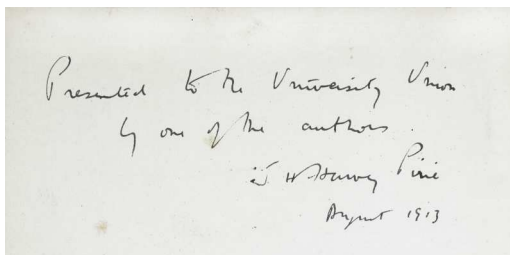 Presented to the University Union
by one of the authors.
J H Harvey Pirie
August 1913